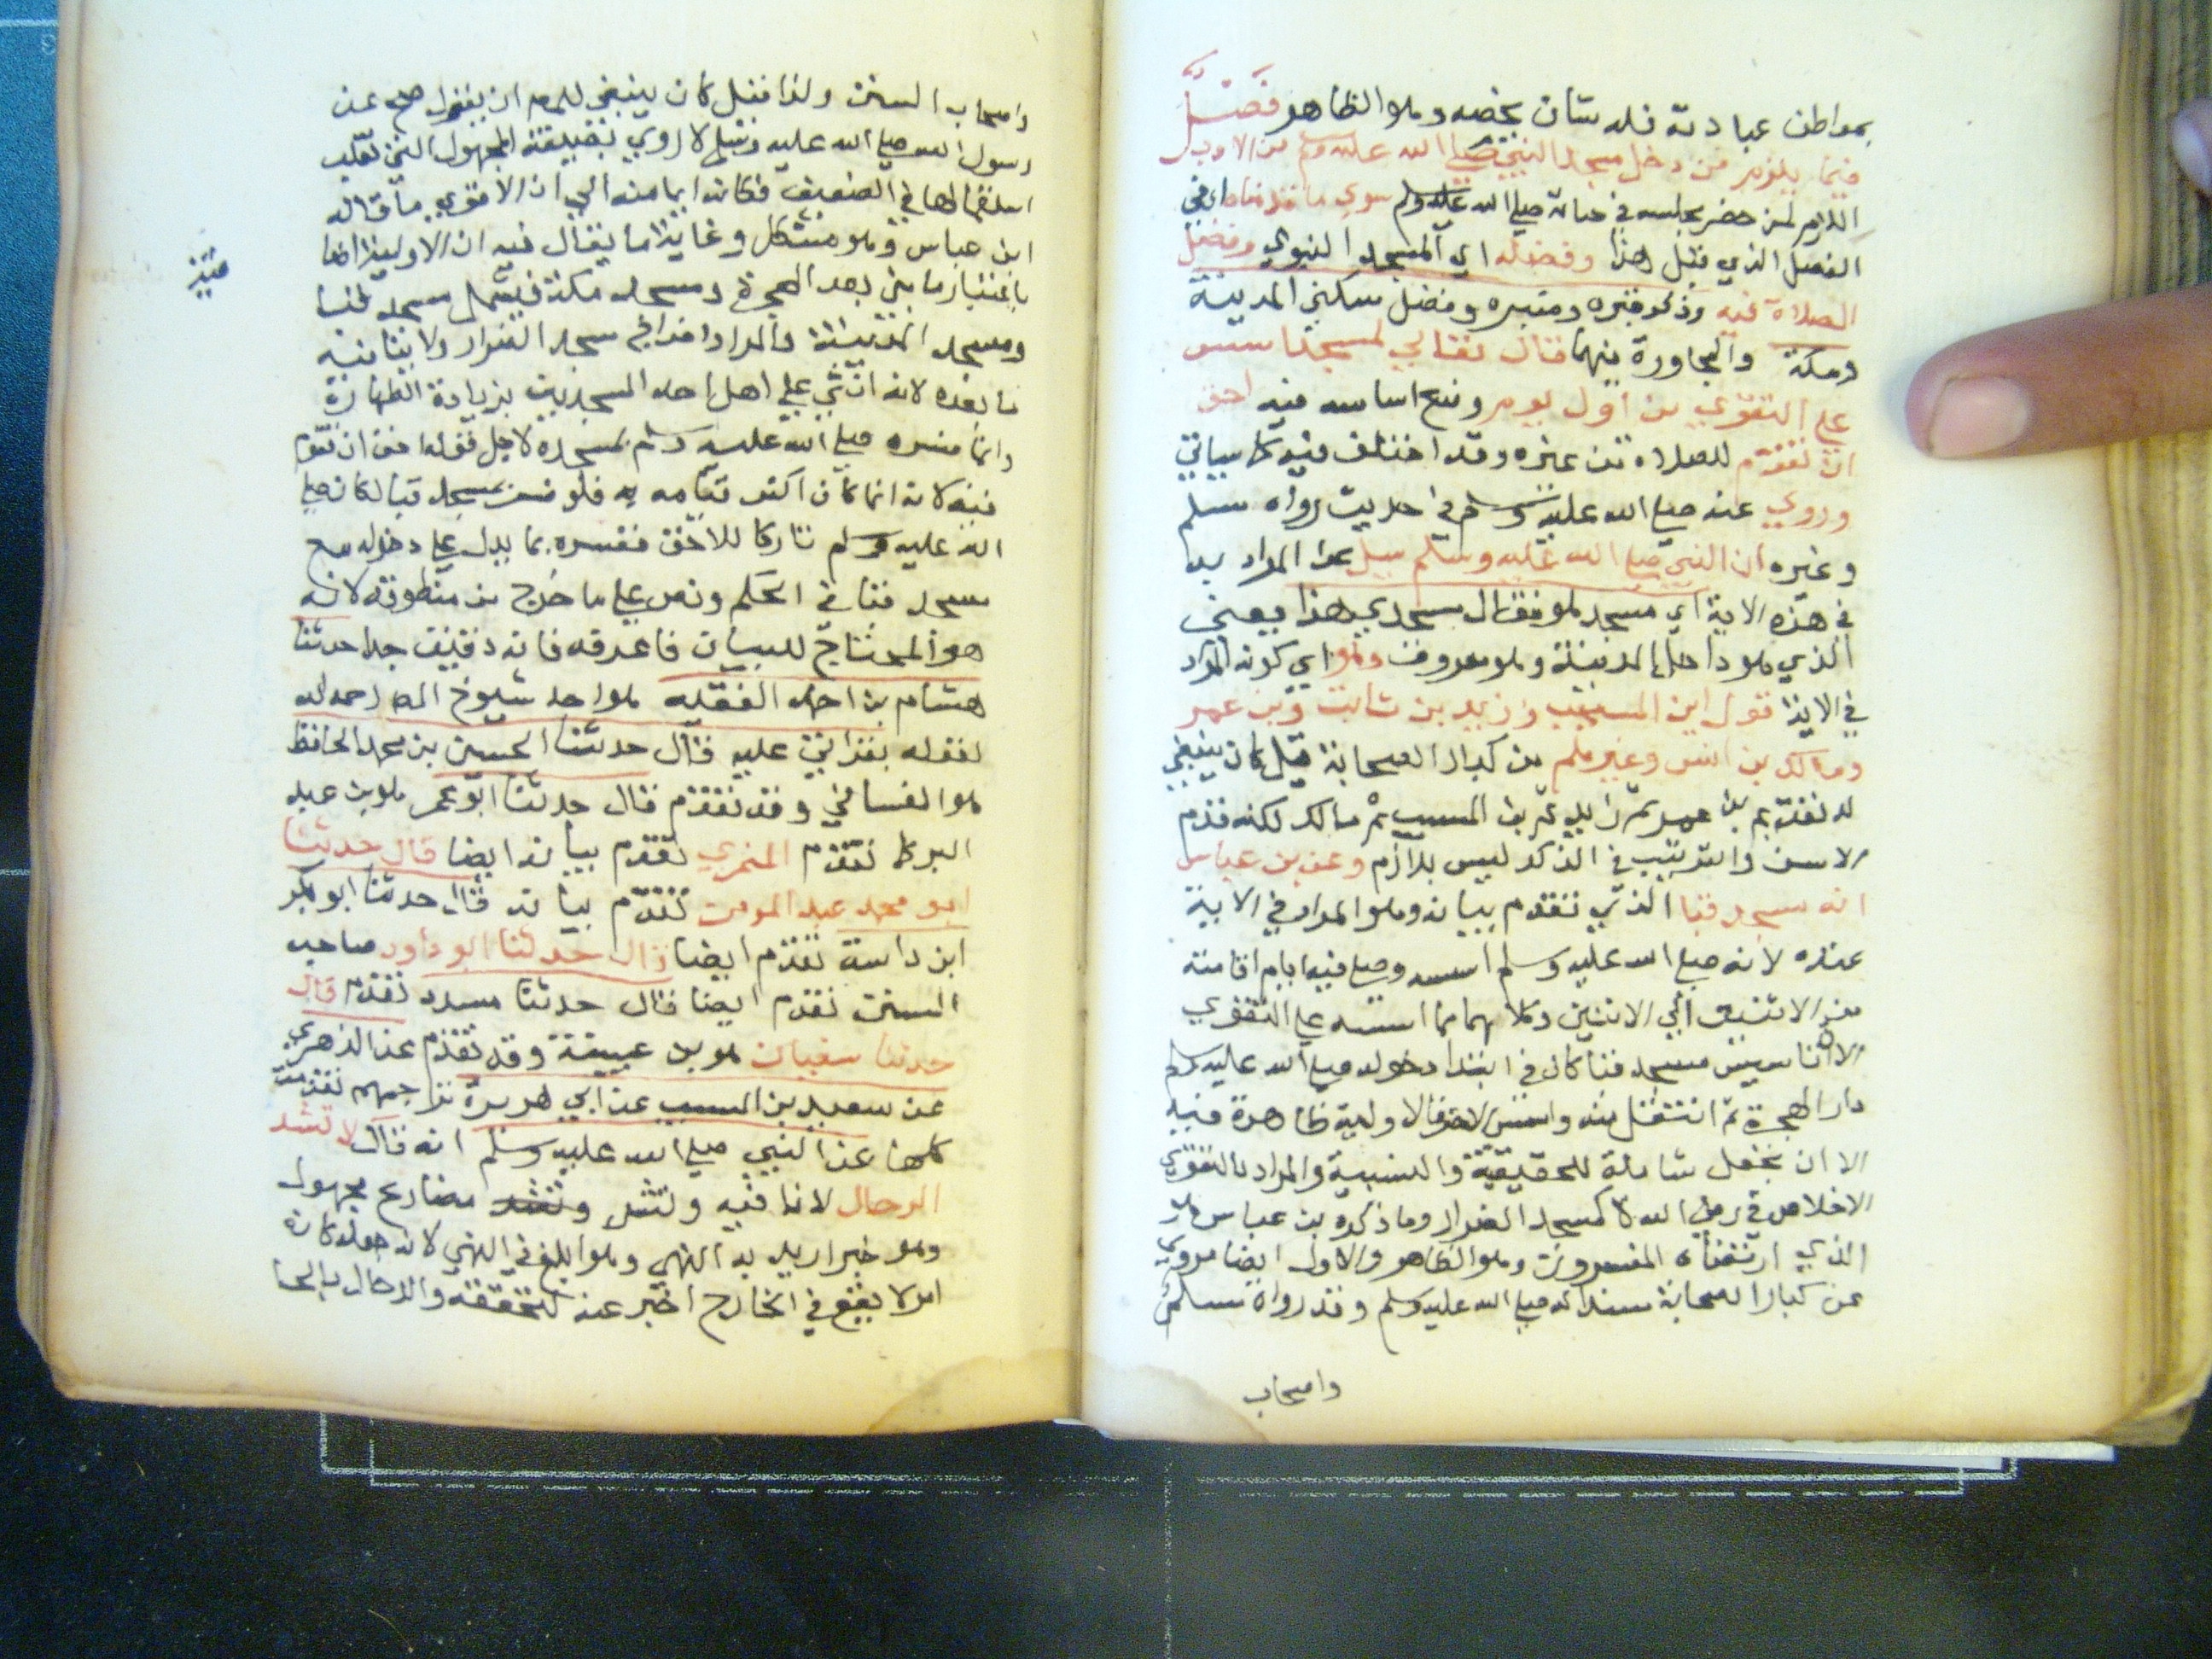 بمواطن عبادته فله شان يخصه وهو الظاهر فصل
فيما يلزم من دخل مسجد النبي صلي الله عليه وسلم من الادب
اللازم لمن حضر مجلسه في حياته صلي الله عليه وسلم سوي ما قدمناه اي في
الفصل الذي قبل هذا وفضله اي المسجد النبوي وفضل
الصلاة فيه وذكر قبره ومنبره وفضل سكني المدينة
ومكة والمجاورة بهما قال تعالي لمسجد اسس
علي التقوي من اول يوم وضع اساسه فيه احق
ان تقوم للصلاة من غيره وقد اختلف فيه كما سياتي
وروي عنه صلي الله عليه وسلم في حديث رواه مسلم
وغيره ان النبي صلي الله عليه وسلم سيل عن المراد به
في هذه الاية اي مسجد هو فقال مسجدي هذا يعني
الذي هو داخل المدينة وهو معروف وهو اي كونه المراد
في الاية قول ابن المسيب وزيد بن ثابت وبن عمر
ومالك بن انس وغيرهم من كبار الصحابة قيل كان ينبغي
له تقديم بن عمر ثم زايد ثم بن المسيب ثم مالك لكنه قدم
الاسن والترتيب في الذكر ليس بلازم وعن بن عباس
انه مسجد قبا الذي تقدم بيانه وهو المراد في الاية
عنده لانه صلي الله عليه وسلم اسسه وصلي فيه ايام اقامته
من الاثنين الي الاثنين وكلاهما مما اسسه علي التقوي
الا ان تاسيس مسجد قبا كان في ابتدا دخوله صلي الله عليه وسلم
دار الهجرة ثم انتقل منه واسس الاخر فالاولية ظاهرة فيه
الا ان تجعل شاملة للحقيقية والنسبية والمراد بالتقوي
الاخلاص في رضي الله لا كمسجد الضرار وما ذكره بن عباس هو
الذي ارتضاه المفسرون وهو الظاهر والاول ايضا مروي
عن كبار الصحابة مسندا له صلي الله عليه وسلم وقد رواه مسلم
واصحاب
واصحاب السنن ولذا قيل كان ينبغي للمص ان يقول صح عن
رسول الله صلي الله عليه وسلم لا روي بصيغة المجهول التي تغلب
استعمالها في الضعيف فكانه ايما منه الي ان الاقوي ما قاله
ابن عباس وهو مشكل وغاية ما يقال فيه ان الاولية انما
باعتبار ما بني بعد الهجرة ومسجد مكة فيشمل مسجد قبا
ومسجد المدينة والمراد اخراج مسجد الضرار ولا ينافيه
ما بعده لانه اثني علي اهل احد المسجدين بزيادة الطهارة
وانما فسره صلي الله عليه وسلم بمسجده لاجل قوله احق ان تقوم
فيه لانه انما كان اكثر قيامه به فلو فسر بمسجد قبا لكان صلي
الله عليه وسلم تاركا للاحق ففسره بما يدل علي دخوله مع
مسجد قبا في الحكم ونص علي ما خرج من منطوقه لانه
هو المحتاج للبيان فاعرفه فانه دقيق جدا حدثنا
هشام بن احمد الفقيه هو احد شيوخ المص رحمه الله
لقوله بقراتي عليه قال حدثنا الحسين بن محمد الحافظ
هو الغساني وقد تقدم قال حدثنا ابو عمر هو بن عبد
البر كما تقدم النمري تقدم بيانه ايضا قال حدثنا
ابو محمد عبد المومن تقدم بيانه قال حدثنا ابو بكر
ابن داسة تقدم ايضا قال حدثنا ابو داود صاحب
السنن تقدم ايضا قال حدثنا مسدد تقدم قال
حدثنا سفيان هو بن عيينة وقد تقدم عن الزهري
عن سعيد بن المسيب عن ابي هريرة تراجمهم تقدمت
كلها عن النبي صلي الله عليه وسلم انه قال لا تشد
الرحال لا نافية وتشد مضارع مجهول
وهو خبر اريد به النهي وهو ابلغ في النهي لانه جعله كانه
امر لا يقع في الخارج اخبر عنه لتحققه والرحال بالحا